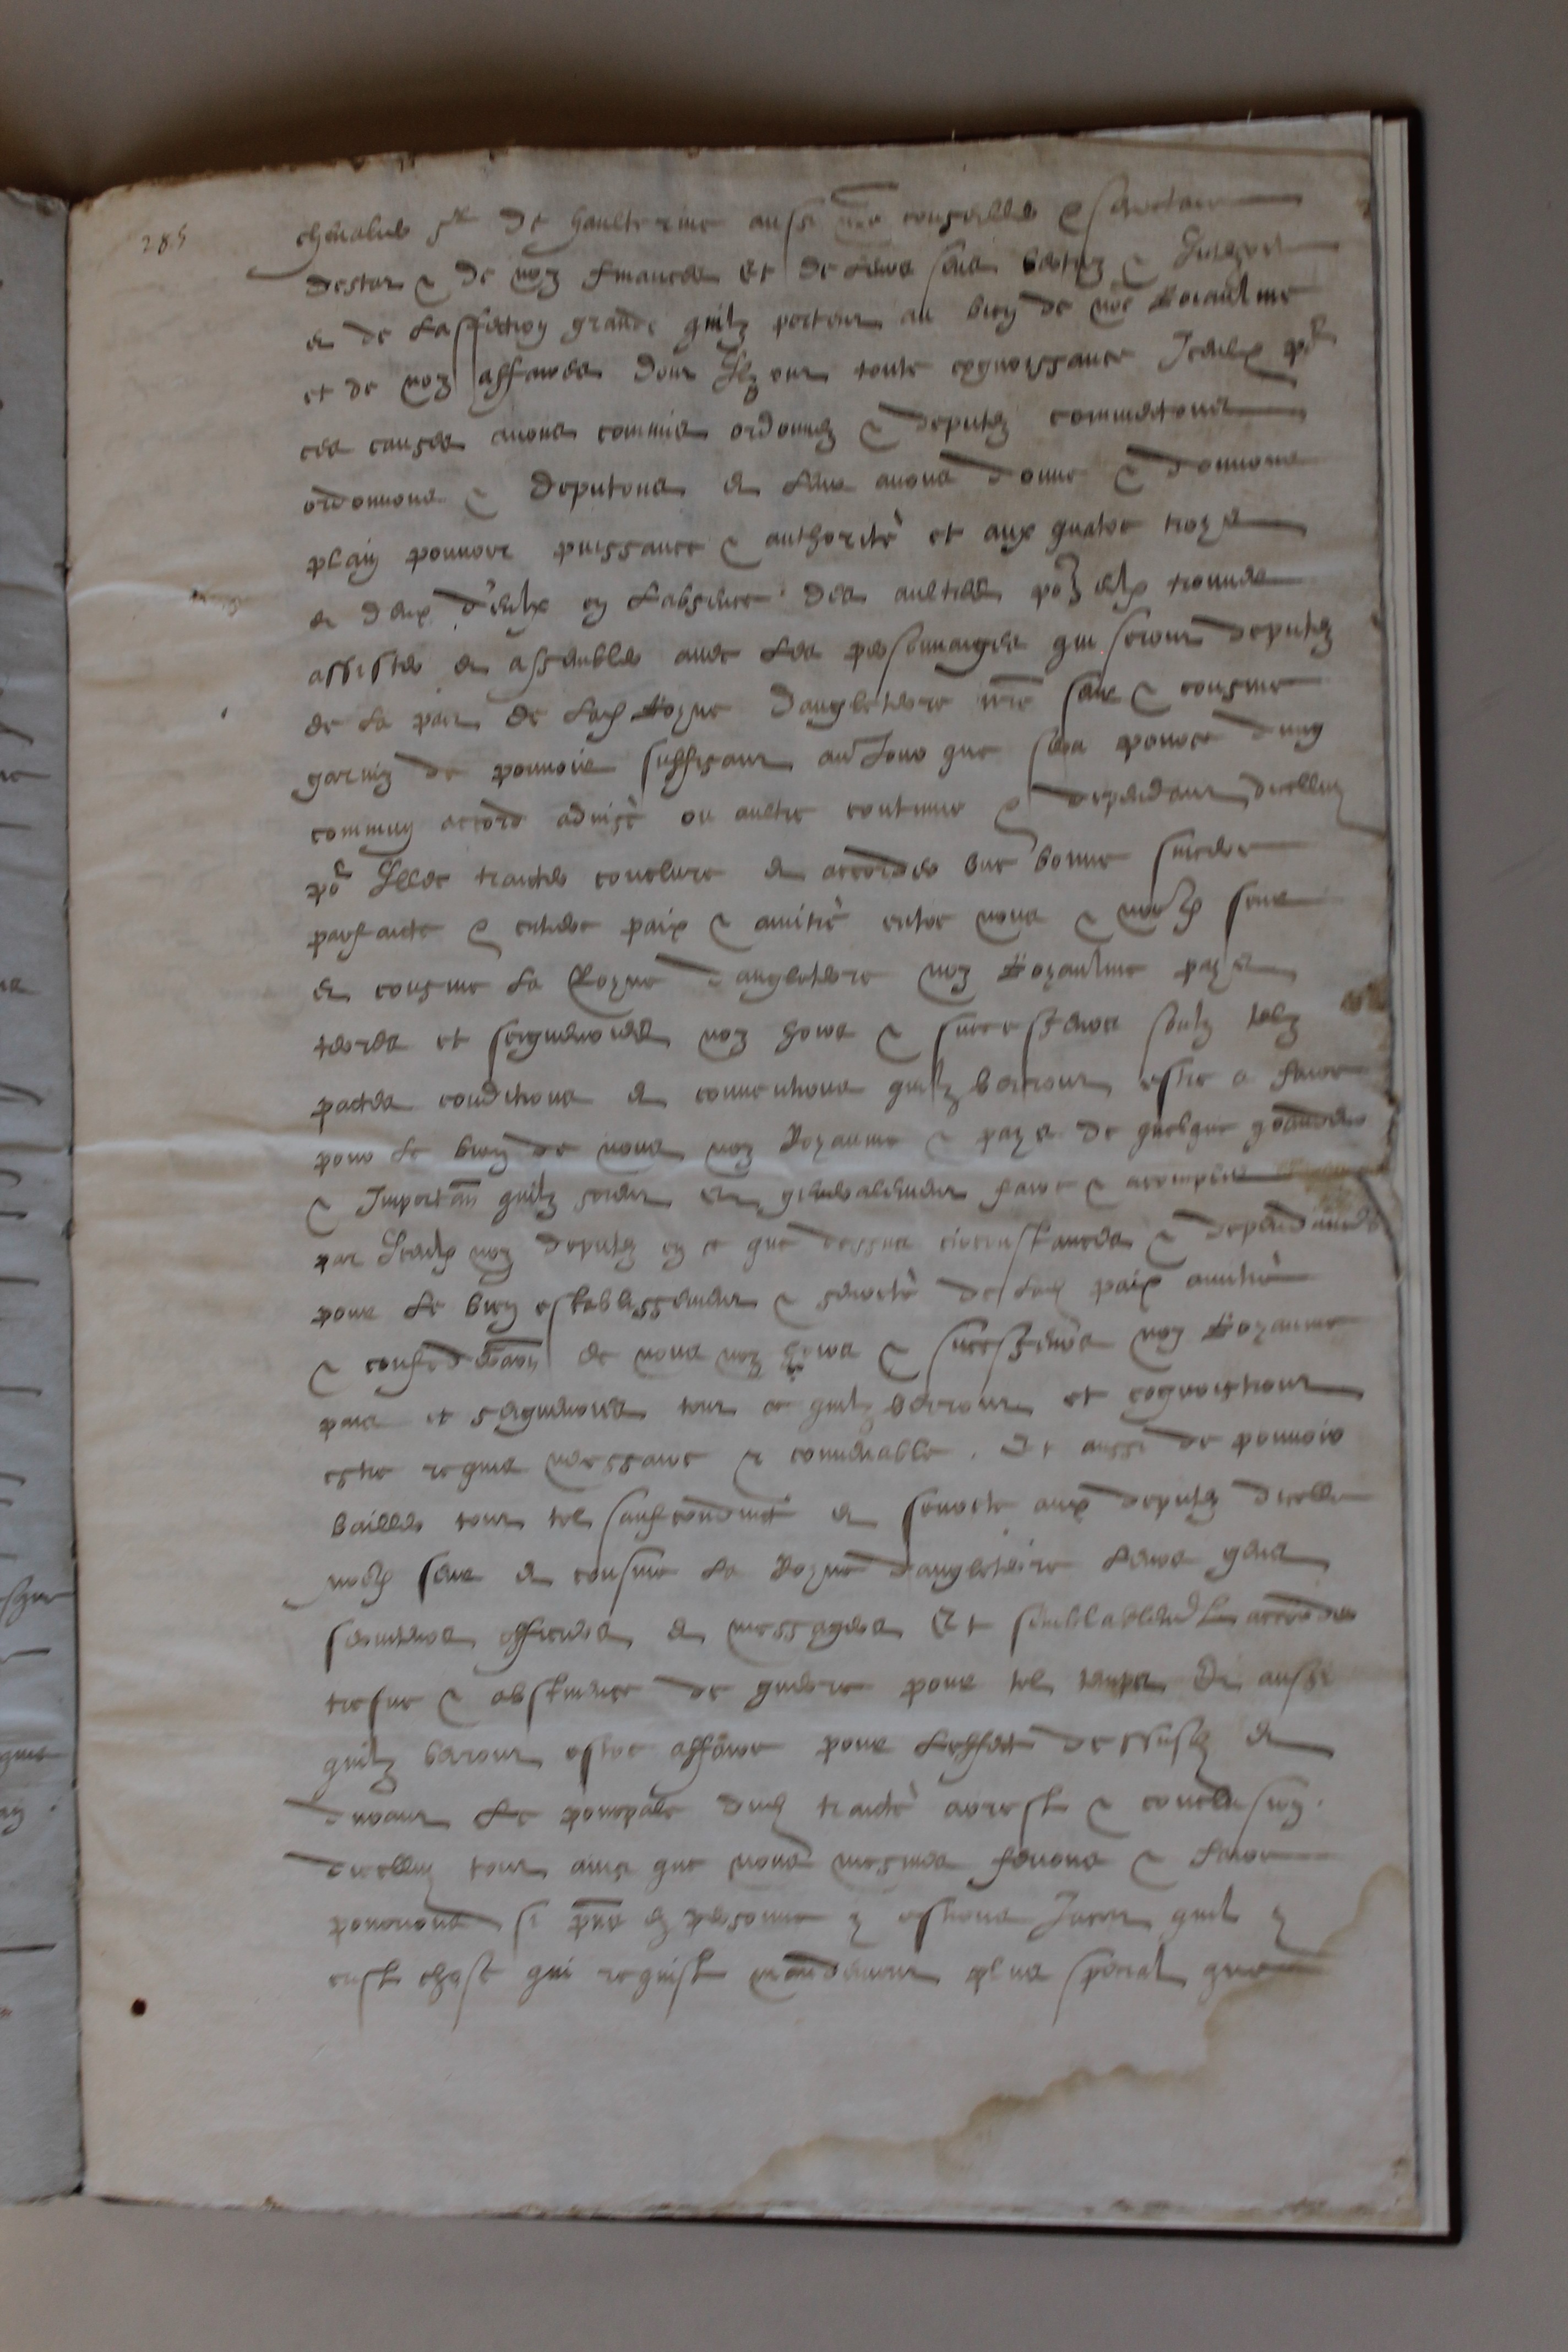 285
chevalier sr de haulterive aussi nre conseiller & secretaire
destat & de noz finances et de leurs sens vertuz & Integrité
et de laffection grande quilz portent au bien de nre Roiaulme
et de noz affaires dont Ilz ont toute cognoissance Iceulx pr
ces causes avons commis ordonnez & deputez commettons
ordonnons & deputons et leur avons donne & donnons
plain pouvoir puissance & authorité et aux quatre troys
et deux d'eulx en labsence des aultres por eulx trouver
assister et assembler avec les personnaiges qui seront deputez
de la part de lad Royne dangleterre nre seur & cousine
garniz de pouvoir suffisant au lieu que sera dung
commun accord advisé ou aultre continue & dependant dicelluy
por Illec traicter conclure et accorder une bonne sincere
parfaicte & entiere paix & amitié entre nous & nred seur
et cousine la Royne dangleterre noz Royaulme pays
terres et seigneuries noz hoirs & successeurs soubz telz
pactes conditions et conventions quilz verront estre a faire
pour le bien de nous noz Royaume & pays de quelque grandeur
& Important quilz soient et generalement faire & acomplir
par Iceulx noz deputez en ce que dessus circunstances & dependances
pour le bien establissement & seureté de lad paix amitié
& confederaon de nous noz hoirs & successeurs noz Royaume
pais et seigneuries tout ce quilz verront et cognoistront
estre requis necessaire & convenable. Et aussi de pouvoir
bailler tout tel saufconduict et seureté aux deputez dicelle
nred seur et cousine la Royne dangleterre leurs gens
serviteurs officiers et messagers Et semblablement accorder
tresve & abstinence de guerre pour tel temps Et aussi
quilz verront estre affaire pour leffect dessusd et
durant le pourparle dud traicté arrest & conclusion
dicelluy tout ainsi que nous mesmes ferions & faire
pourrions si pns en personne y estions Jacoit quil y
eust chose qui requist mandement plus special que